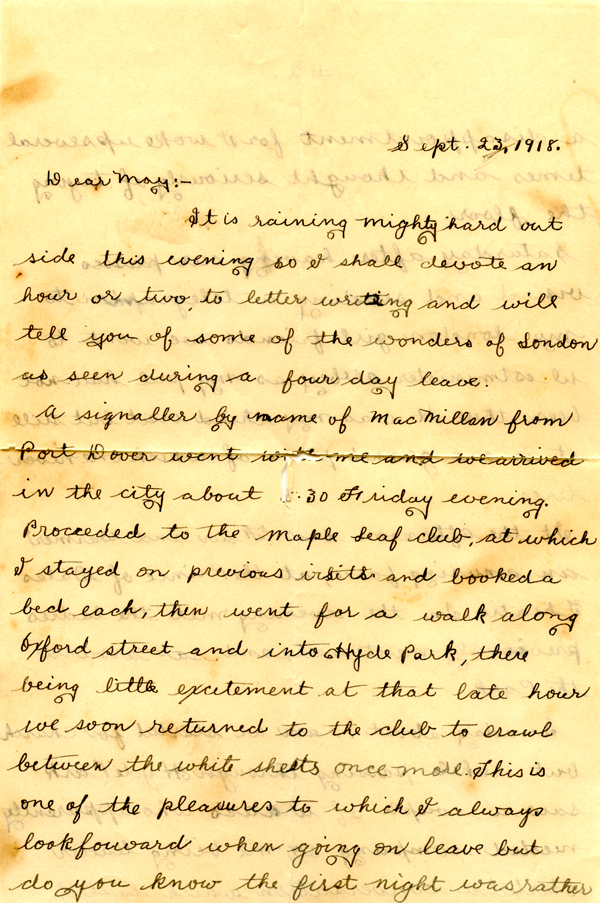 Sept. 23, 1918.
Dear May:-
It is raining mighty hard out
side this evening so I shall devote an
hour or two, to letter writing and will
tell you of some of the wonders of London
as seen during a four day leave.
A signaller by name of MacMillan from
Port Dover went with me and we arrived
in the city about 30 Friday evening.
Proceeded to the Maple Leaf club, at which
I stayed on previous visits and booked a
bed each, then went for a walk along
Oxford street and into Hyde Park, there
being little excitement at that late hour
we soon returned to the club to crawl
between the white sheets once more. This is
one of the pleasures to which I always
look forward when going on leave but
do you know the first night was rather